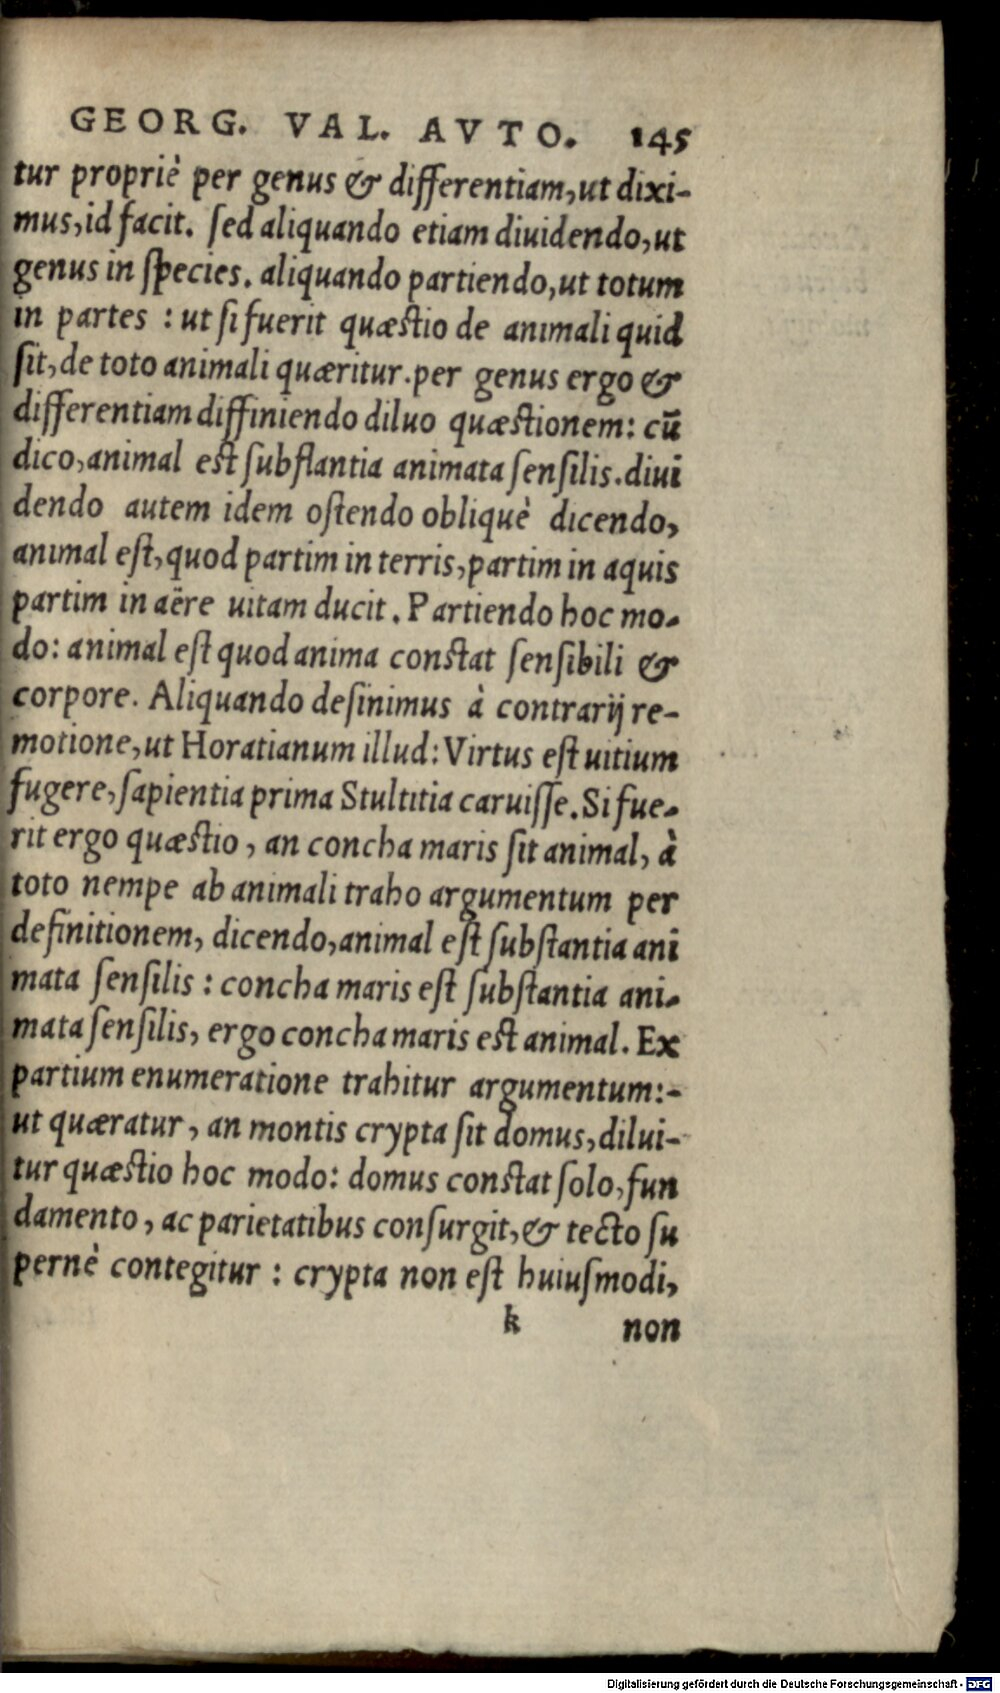 GEORG. VAL. AVTO. 145
tur propriè per genus & differentiam, ut dixi-
mus, id facit. ſed aliquando etiam diuidendo, ut
genus in ſpecies. aliquando partiendo, ut totum
in partes : ut ſi fuerit quæſtio de animali quid
ſit, de toto animali quæritur. per genus ergo &
differentiam diffiniendo diluo quæſtionem: cū
dico, animal eſt ſubſtantia animata ſenſilis. diui
dendo autem idem oſtendo obliquè dicendo,
animal eſt, quod partim in terris, partim in aquis
partim in aëre uitam ducit. Partiendo hoc mo-
do: animal eſt quod anima conſtat ſenſibili &
corpore. Aliquando deſinimus à contrarij re-
motione, ut Horatianum illud: Virtus eſt uitium
fugere, ſapientia prima Stultitia caruiſſe. Si fue-
rit ergo quæſtio, an concha maris ſit animal, à
toto nempe ab animali traho argumentum per
definitionem, dicendo, animal eſt ſubſtantia ani
mata ſenſilis : concha maris eſt ſubſtantia ani-
mata ſenſilis, ergo concha maris eſt animal. Ex
partium enumeratione trahitur argumentum:-
ut quæratur, an montis crypta ſit domus, dilui-
tur quæſtio hoc modo: domus conſtat ſolo, fun
damento, ac parietatibus conſurgit, & tecto ſu
pernè contegitur : crypta non eſt huiuſmodi,
k non
Digitalisierung gefördert durch die Deutsche Forschungsgemeinschaft - DFG